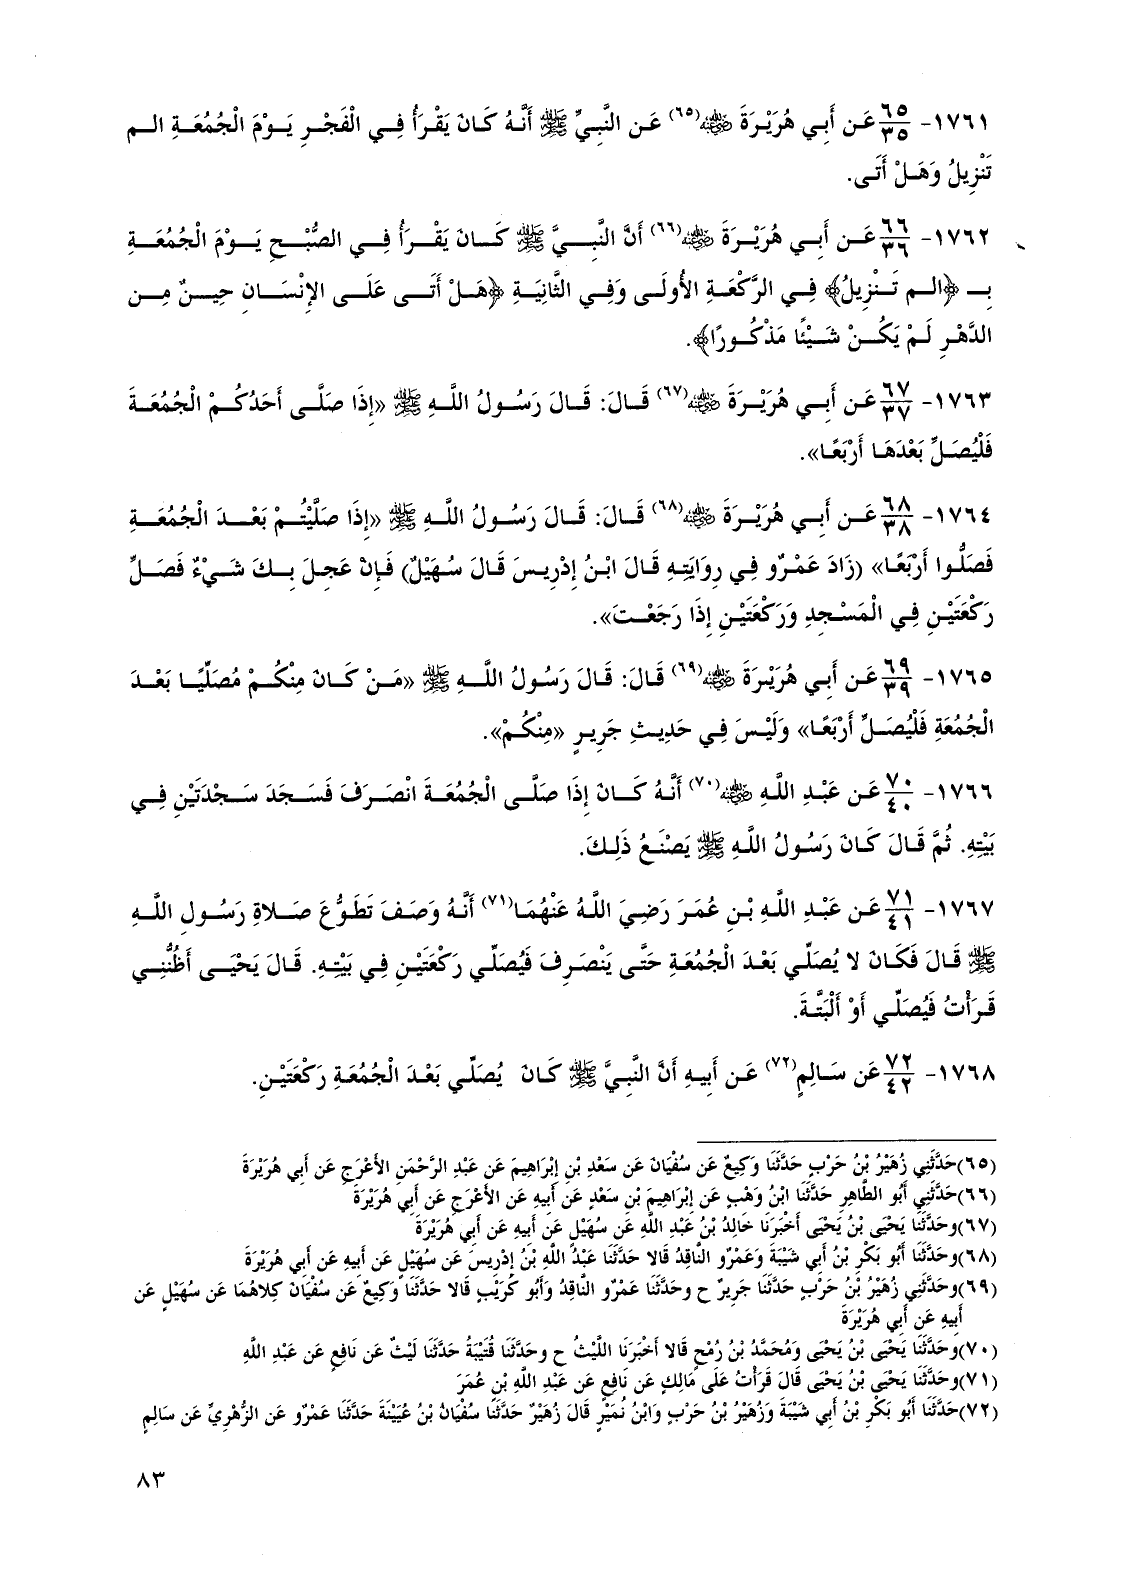 ١٧٦١- ٦٥/٣٥ عَن أَبِي هُرَيْرَةَ ﵁(٦٥) عَن النَّبِيِّ ﷺ أَنَّهُ كَانَ يَقْرَأُ فِي الْفَجْرِ يَوْمَ الْجُمُعَةِ الم
تَنْزِيلُ وَهَلْ أَتَى.
١٧٦٢- ٦٦/٣٦ عَن أَبِي هُرَيْرَةَ ﵁(٦٦) أَنَّ النَّبِيَّ ﷺ كَانَ يَقْرَأُ فِي الصُّبْحِ يَوْمَ الْجُمُعَةِ
بِـ ﴿الم تَنْزِيلُ﴾ فِي الرَّكْعَةِ الأُولَى وَفِي الثَّانِيَةِ ﴿هَلْ أَتَى عَلَى الإِنْسَانِ حِينٌ مِن
الدَّهْرِ لَمْ يَكُنْ شَيْئًا مَذْكُورًا﴾.
١٧٦٣- ٦٧/٣٧ عَن أَبِي هُرَيْرَةَ ﵁(٦٧) قَالَ: قَالَ رَسُولُ اللَّهِ ﷺ «إِذَا صَلَّى أَحَدُكُمْ الْجُمُعَةَ
فَلْيُصَلِّ بَعْدَهَا أَرْبَعًا».
١٧٦٤- ٦٨/٣٨ عَن أَبِي هُرَيْرَةَ ﵁(٦٨) قَالَ: قَالَ رَسُولُ اللَّهِ ﷺ «إِذَا صَلَّيْتُمْ بَعْدَ الْجُمُعَةِ
فَصَلُّوا أَرْبَعًا» (زَادَ عَمْرٌو فِي رِوَايَتِهِ قَالَ ابْنُ إِدْرِيسَ قَالَ سُهَيْلٌ) فَإِنْ عَجِلَ بِكَ شَيْءٌ فَصَلِّ
رَكْعَتَيْنِ فِي الْمَسْجِدِ وَرَكْعَتَيْنِ إِذَا رَجَعْتَ».
١٧٦٥- ٦٩/٣٩ عَن أَبِي هُرَيْرَةَ ﵁(٦٩) قَالَ: قَالَ رَسُولُ اللَّهِ ﷺ «مَنْ كَانَ مِنْكُمْ مُصَلِّيًا بَعْدَ
الْجُمُعَةِ فَلْيُصَلِّ أَرْبَعًا» وَلَيْسَ فِي حَدِيثِ جَرِيرٍ «مِنْكُمْ».
١٧٦٦- ٧٠/٤٠ عَن عَبْدِ اللَّهِ ﵁(٧٠) أَنَّهُ كَانَ إِذَا صَلَّى الْجُمُعَةَ انْصَرَفَ فَسَجَدَ سَجْدَتَيْنِ فِي
بَيْتِهِ. ثُمَّ قَالَ كَانَ رَسُولُ اللَّهِ ﷺ يَصْنَعُ ذَلِكَ.
١٧٦٧- ٧١/٤١ عَن عَبْدِ اللَّهِ بْنِ عُمَرَ رَضِيَ اللَّهُ عَنْهُمَا(٧١) أَنَّهُ وَصَفَ تَطَوُّعَ صَلاةِ رَسُولِ اللَّهِ
ﷺ قَالَ فَكَانَ لا يُصَلِّي بَعْدَ الْجُمُعَةِ حَتَّى يَنْصَرِفَ فَيُصَلِّي رَكْعَتَيْنِ فِي بَيْتِهِ. قَالَ يَحْيَى أَظُنُّنِي
قَرَأْتُ فَيُصَلِّي أَوْ أَلْبَتَّةَ.
١٧٦٨- ٧٢/٤٢ عَن سَالِمٍ(٧٢) عَن أَبِيهِ أَنَّ النَّبِيَّ ﷺ كَانَ يُصَلِّي بَعْدَ الْجُمُعَةِ رَكْعَتَيْنِ.
(٦٥)حَدَّثَنِي زُهَيْرُ بْنُ حَرْبٍ حَدَّثَنَا وَكِيعٌ عَن سُفْيَانَ عَن سَعْدِ بْنِ إِبْرَاهِيمَ عَن عَبْدِ الرَّحْمَنِ الأَعْرَجِ عَن أَبِي هُرَيْرَةَ
(٦٦)حَدَّثَنِي أَبُو الطَّاهِرِ حَدَّثَنَا ابْنُ وَهْبٍ عَن إِبْرَاهِيمَ بْنِ سَعْدٍ عَن أَبِيهِ عَن الأَعْرَجِ عَن أَبِي هُرَيْرَةَ
(٦٧)وحَدَّثَنَا يَحْيَى بْنُ يَحْيَى أَخْبَرَنَا خَالِدُ بْنُ عَبْدِ اللَّهِ عَن سُهَيْلٍ عَن أَبِيهِ عَن أَبِي هُرَيْرَةَ
(٦٨)وحَدَّثَنَا أَبُو بَكْرِ بْنُ أَبِي شَيْبَةَ وَعَمْرٌو النَّاقِدُ قَالا حَدَّثَنَا عَبْدُ اللَّهِ بْنُ إِدْرِيسَ عَن سُهَيْلٍ عَن أَبِيهِ عَن أَبِي هُرَيْرَةَ
(٦٩)وحَدَّثَنِي زُهَيْرُ بْنُ حَرْبٍ حَدَّثَنَا جَرِيرٌ ح وحَدَّثَنَا عَمْرٌو النَّاقِدُ وَأَبُو كُرَيْبٍ قَالا حَدَّثَنَا وَكِيعٌ عَن سُفْيَانَ كِلاهُمَا عَن سُهَيْلٍ عَن
أَبِيهِ عَن أَبِي هُرَيْرَةَ
(٧٠)وحَدَّثَنَا يَحْيَى بْنُ يَحْيَى وَمُحَمَّدُ بْنُ رُمْحٍ قَالا أَخْبَرَنَا اللَّيْثُ ح وحَدَّثَنَا قُتَيْبَةُ حَدَّثَنَا لَيْثٌ عَن نَافِعٍ عَن عَبْدِ اللَّهِ
(٧١)وحَدَّثَنَا يَحْيَى بْنُ يَحْيَى قَالَ قَرَأْتُ عَلَى مَالِكٍ عَن نَافِعٍ عَن عَبْدِ اللَّهِ بْنِ عُمَرَ
(٧٢)حَدَّثَنَا أَبُو بَكْرِ بْنُ أَبِي شَيْبَةَ وَزُهَيْرُ بْنُ حَرْبٍ وَابْنُ نُمَيْرٍ قَالَ زُهَيْرٌ حَدَّثَنَا سُفْيَانُ بْنُ عُيَيْنَةَ حَدَّثَنَا عَمْرٌو عَن الزُّهْرِيِّ عَن سَالِمٍ
٨٣